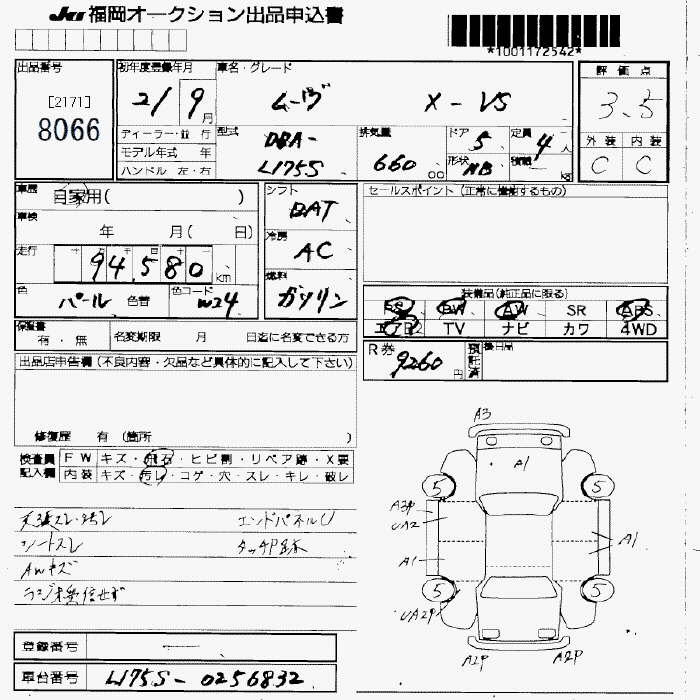 JU 福岡オークション出品申込書
*1001172542*
出品番号
[2171]
8066
初年度登録年月
21/9月
車名・グレード
ムーヴ X-VS
評価点
3.5
外装 内装
C C
ディーラー・並行
モデル年式 年
ハンドル 左・右
型式
DBA-
L175S
排気量
660 cc
ドア 5
形状 HB
定員 4人
積載 — kg
車歴
自家用( )
車検
年 月( 日)
走行
94,580 km
色
パール 色替
色コード W24
シフト
DAT
冷房
AC
燃料
ガソリン
セールスポイント(正常に機能するもの)
装備品(純正品に限る)
PS PW AW SR ABS
エアB2 TV ナビ カワ 4WD
保証書
有・無
名変期限 月 日迄に名変できる方
R券
9260円
預託済
後日品
出品店申告欄(不良内容・欠品など具体的に記入して下さい)
修復歴 有(箇所 )
検査員
記入欄
FW キズ・飛石・ヒビ割・リペア跡・X要
内装 キズ・汚レ・コゲ・穴・スレ・キレ・破レ
天張スレ・汚レ エンドパネルU
シートスレ タッチP跡
AWキズ
ラジオ受信せず
A3
A1
5
5
A3P
UA2
A1
A1
5
5
UA2P
A2P
A2P
登録番号
—
車台番号
L175S-0256832